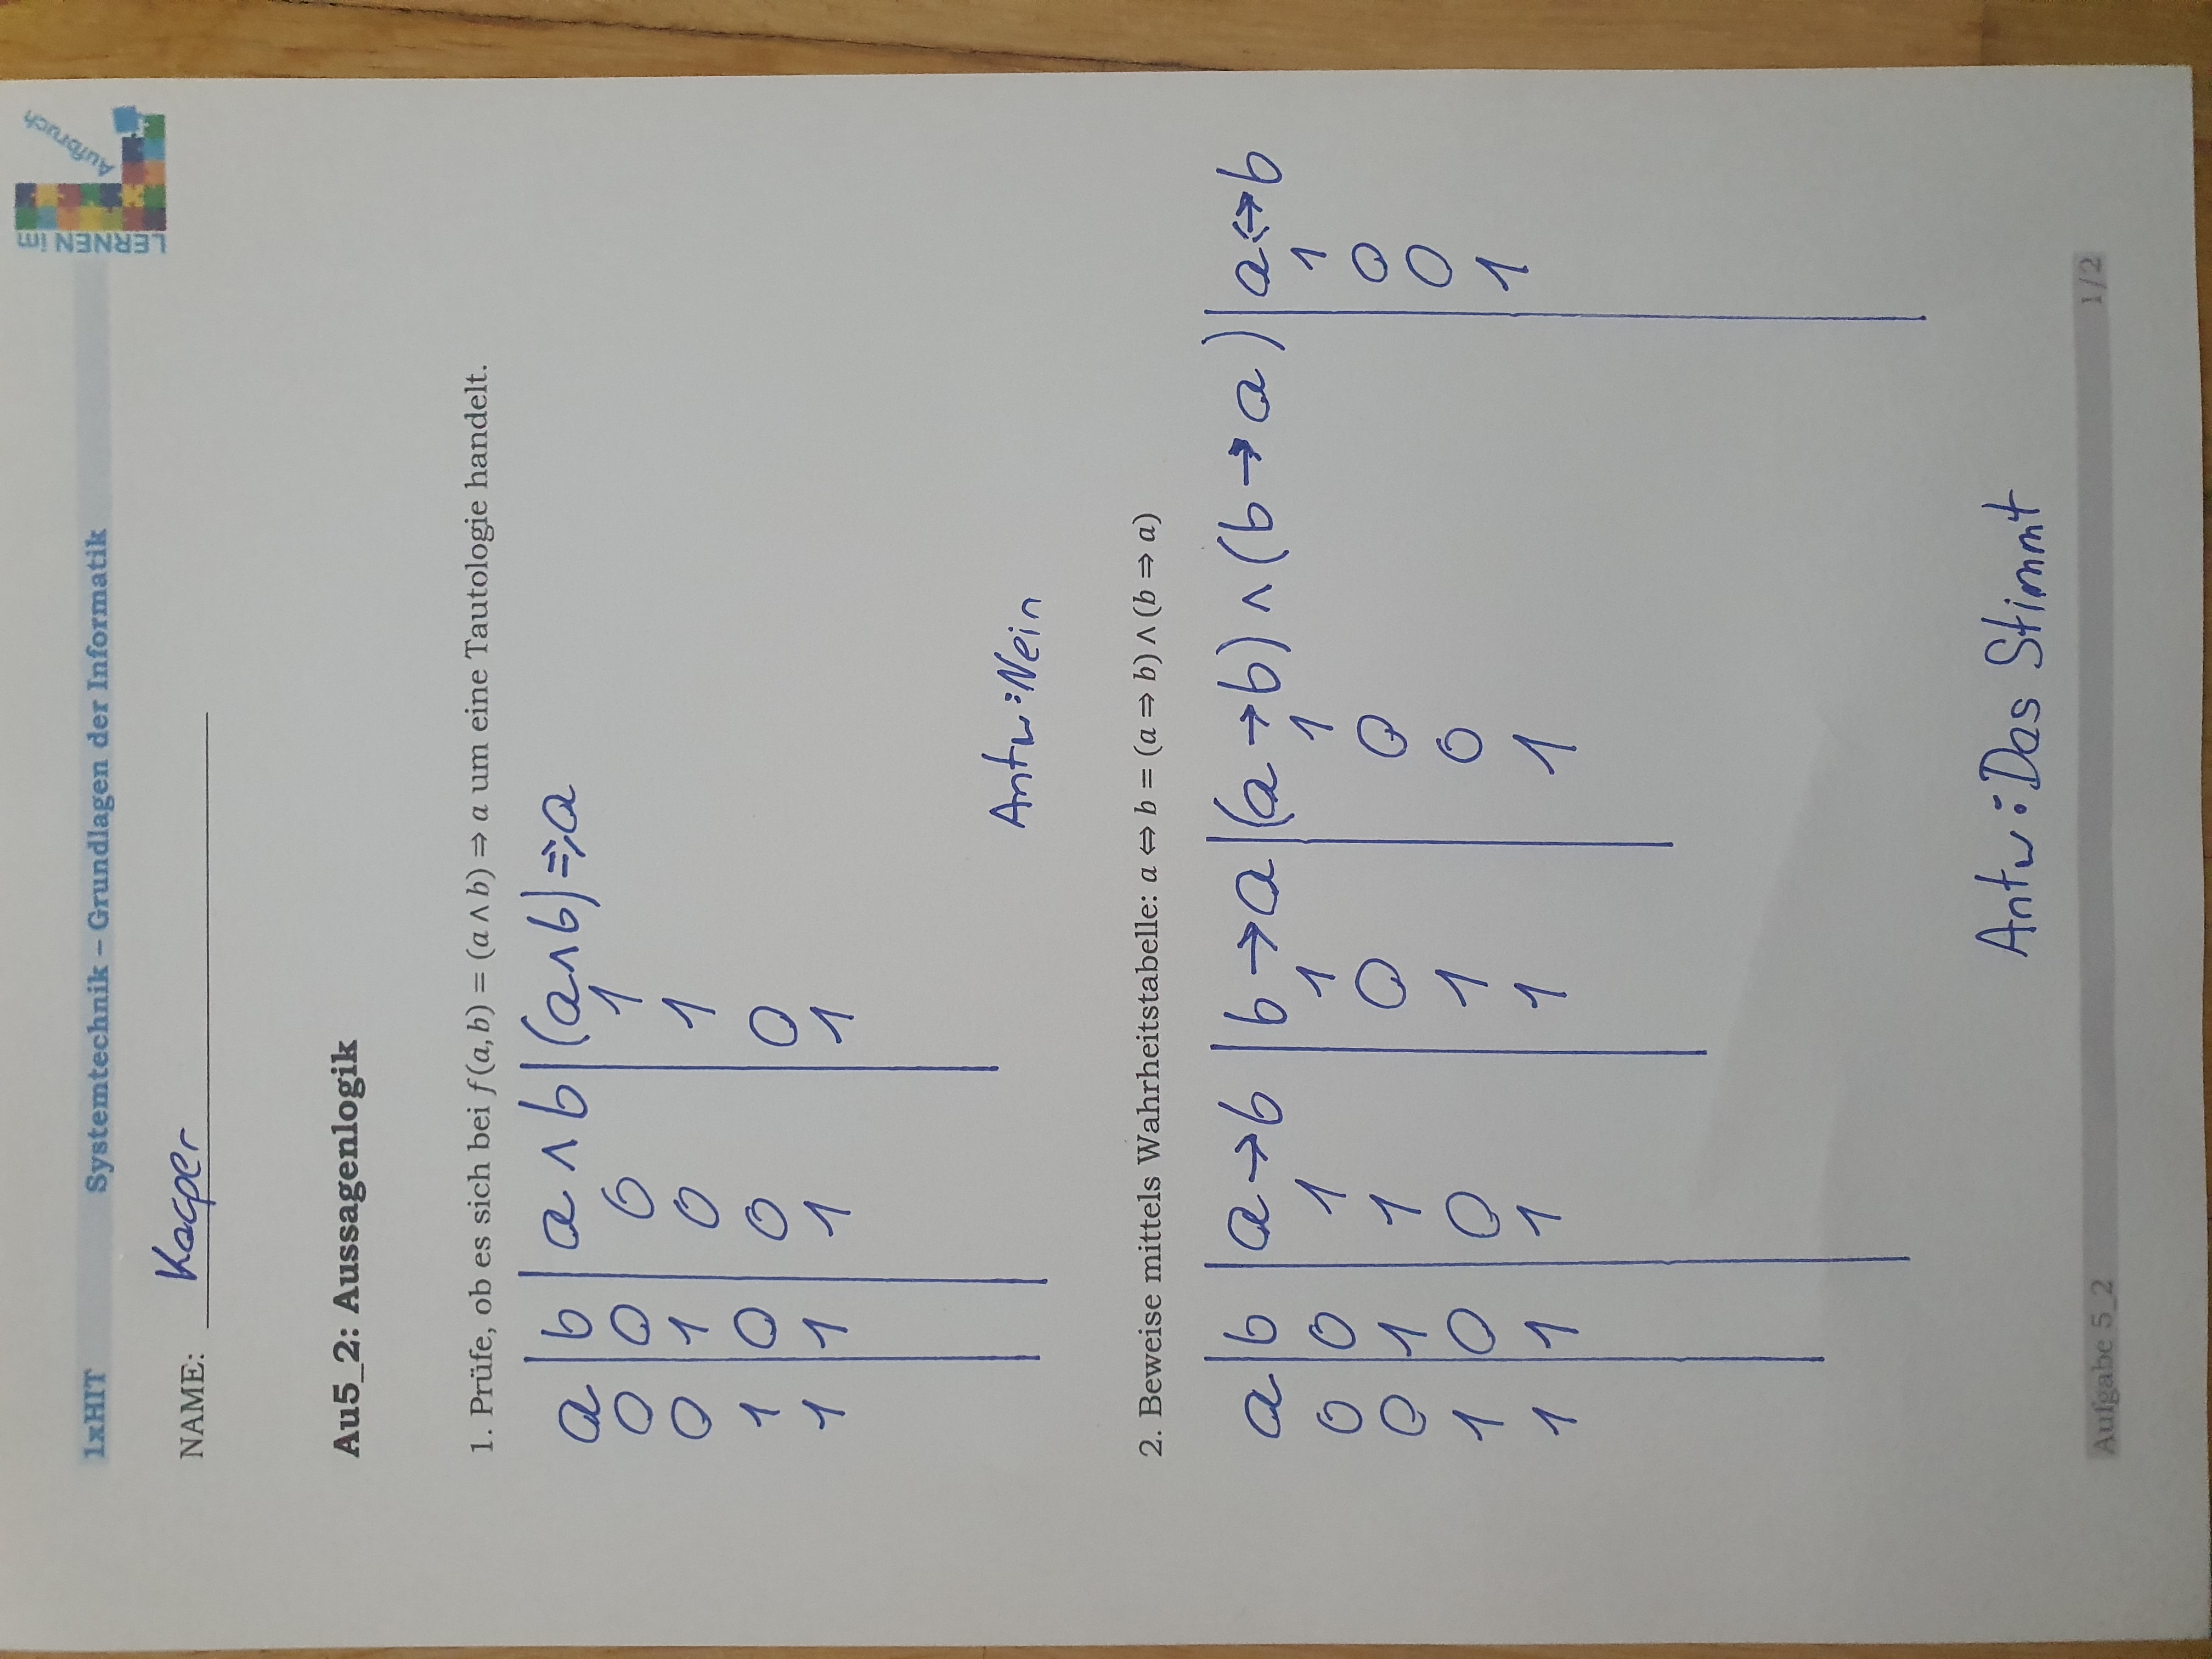 1xHIT Systemtechnik – Grundlagen der Informatik
LERNEN im Aufbruch
NAME: Kacper
Au5_2: Aussagenlogik
1. Prüfe, ob es sich bei f(a, b) = (a ∧ b) ⇒ a um eine Tautologie handelt.
a | b | a ∧ b | (a∧b) ⇒ a
0 0 0 1
0 1 0 1
1 0 0 0
1 1 1 1
Antw: Nein
2. Beweise mittels Wahrheitstabelle: a ⇔ b = (a ⇒ b) ∧ (b ⇒ a)
a | b | a → b | b → a | (a → b) ∧ (b → a) | a ↔ b
0 0 1 1 1 1
0 1 1 0 0 0
1 0 0 1 0 0
1 1 1 1 1 1
Antw: Das Stimmt
Aufgabe 5_2 1/2